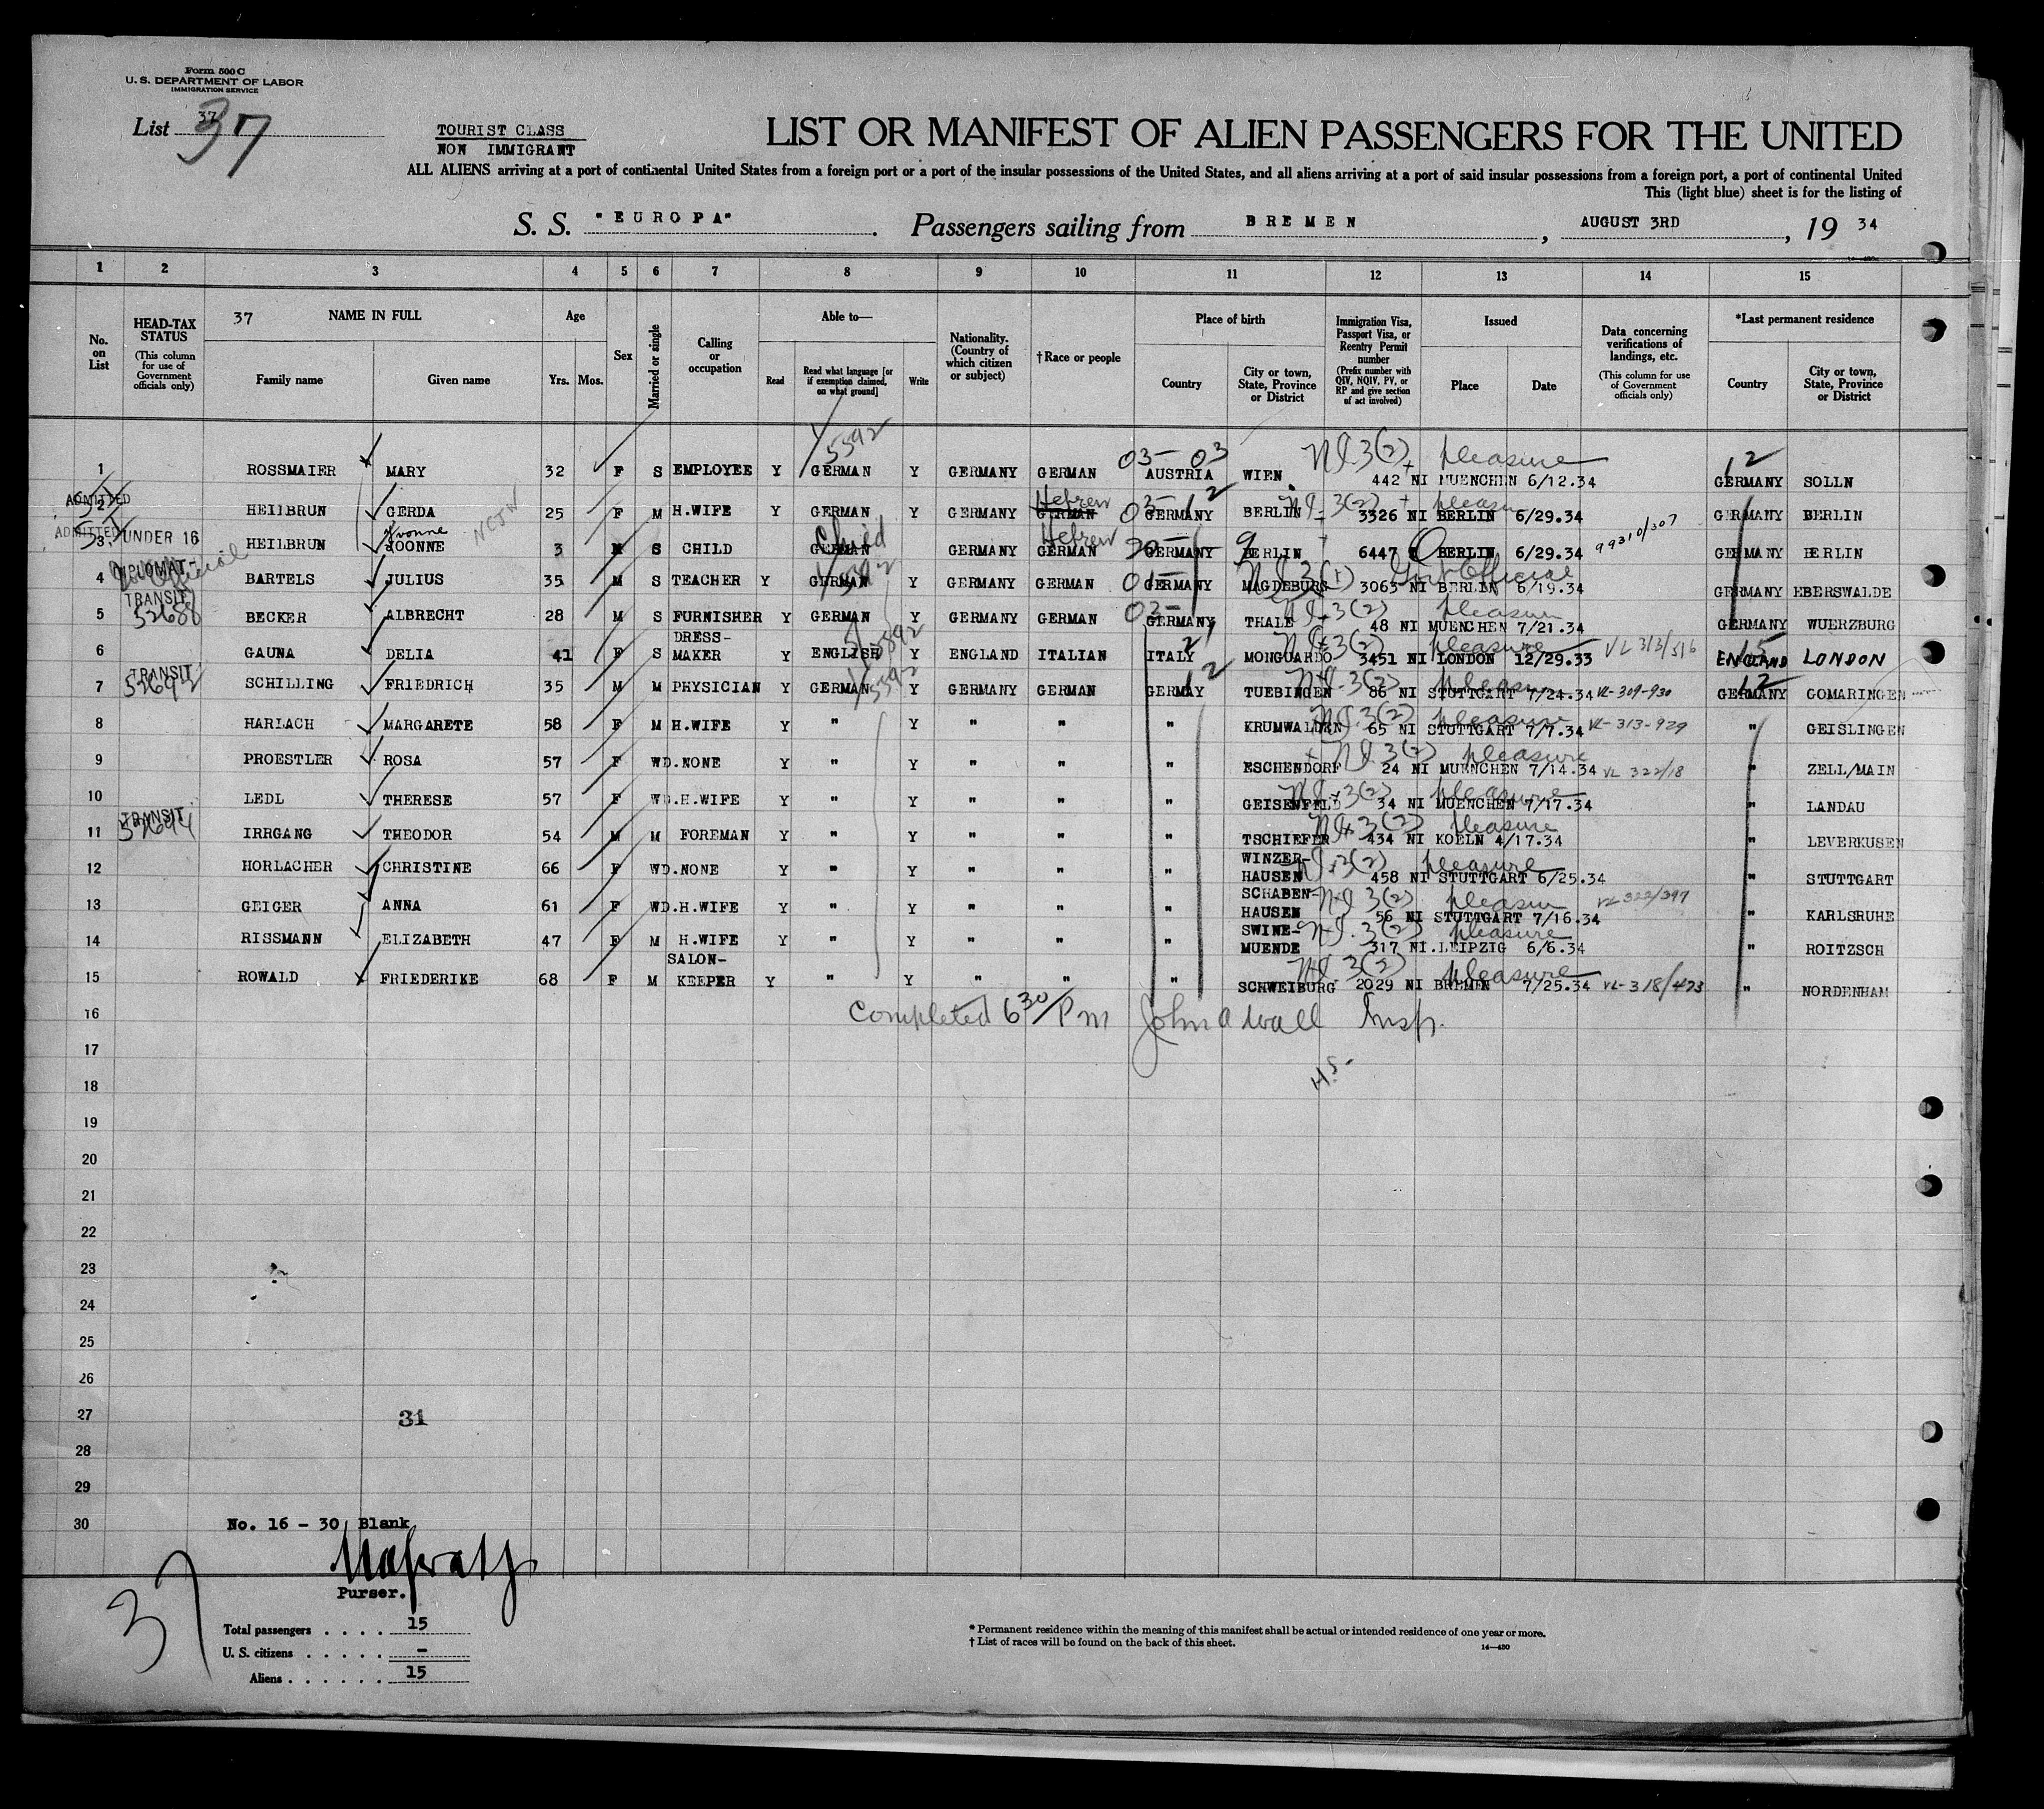 Form 500 C
U. S. DEPARTMENT OF LABOR
IMMIGRATION SERVICE
List 37 37
TOURIST CLASS
NON IMMIGRANT
LIST OR MANIFEST OF ALIEN PASSENGERS FOR THE UNITED
ALL ALIENS arriving at a port of continental United States from a foreign port or a port of the insular possessions of the United States, and all aliens arriving at a port of said insular possessions from a foreign port, a port of continental United
This (light blue) sheet is for the listing of
S. S. "EUROPA". Passengers sailing from BREMEN, AUGUST 3RD, 19 34
1 2 3 4 5 6 7 8 9 10 11 12 13 14 15
No. on List
HEAD-TAX STATUS (This column for use of Government officials only)
37 NAME IN FULL
Family name Given name
Age Yrs. Mos.
Sex
Married or single
Calling or occupation
Able to—
Read Read what language [or if exemption claimed, on what ground] Write
Nationality. (Country of which citizen or subject)
†Race or people
Place of birth
Country City or town, State, Province or District
Immigration Visa, Passport Visa, or Reentry Permit number (Prefix number with QIV, NQIV, PV, or RP and give section of act involved)
Issued
Place Date
Data concerning verifications of landings, etc. (This column for use of Government officials only)
*Last permanent residence
Country City or town, State, Province or District
5592 03- 03 3(2) pleasure 12
1 ROSSMAIER MARY 32 F S EMPLOYEE Y GERMAN Y GERMANY GERMAN AUSTRIA WIEN 442 NI MUENCHEN 6/12.34 GERMANY SOLLN
ADMITTED Hebrew 03- 12 3(2)
2 HEILBRUN GERDA 25 F M H.WIFE Y GERMAN Y GERMANY GERMAN GERMANY BERLIN 3326 NI BERLIN 6/29.34 GERMANY BERLIN
ADMITTED Yvonne Child Hebrew 99310/307
3 UNDER 16 HEILBRUN JOONNE 3 M S CHILD GERMAN GERMANY GERMAN GERMANY BERLIN 6447 BERLIN 6/29.34 GERMANY BERLIN
DIPLOMAT- 3(1) Gov't Official
4 BARTELS JULIUS 35 M S TEACHER Y GERMAN Y GERMANY GERMAN GERMANY MAGDEBURG 3063 NI BERLIN 6/19.34 GERMANY EBERSWALDE
TRANSIT 52688 03- 3(2) pleasure
5 BECKER ALBRECHT 28 M S FURNISHER Y GERMAN Y GERMANY GERMAN GERMANY THALE 48 NI MUENCHEN 7/21.34 GERMANY WUERZBURG
3(2) pleasure VL 313/516
6 GAUNA DELIA 41 F S DRESS-MAKER Y ENGLISH Y ENGLAND ITALIAN ITALY MONGUARDO 3451 NI LONDON 12/29.33 ENGLAND LONDON
TRANSIT 52692 5592 12 3(2) pleasure 12
7 SCHILLING FRIEDRICH 35 M M PHYSICIAN Y GERMAN Y GERMANY GERMAN GERMAY TUEBINGEN 86 NI STUTTGART 7/24.34 VL-309-930 GERMANY GOMARINGEN
3(2) pleasure
8 HARLACH MARGARETE 58 F M H.WIFE Y " Y " " " KRUMWALDEN 65 NI STUTTGART 7/7.34 VL-313-929 " GEISLINGEN
3(2) pleasure
9 PROESTLER ROSA 57 F WD. NONE Y " Y " " " ESCHENDORF 24 NI MUENCHEN 7/14.34 VL 322/18 " ZELL/MAIN
3(2) pleasure
10 LEDL THERESE 57 F WD. H.WIFE Y " Y " " " GEISENFELD 34 NI MUENCHEN 7/17.34 " LANDAU
TRANSIT 52694 3(2) pleasure
11 IRRGANG THEODOR 54 M M FOREMAN Y " Y " " " TSCHIEFER 434 NI KOELN 4/17.34 " LEVERKUSEN
3(2) pleasure
12 HORLACHER CHRISTINE 66 F WD. NONE Y " Y " " " WINZER-HAUSEN 458 NI STUTTGART 6/25.34 " STUTTGART
3(2) pleasure VL-322/397
13 GEIGER ANNA 61 F WD. H.WIFE Y " Y " " " SCHABEN-HAUSEN 56 NI STUTTGART 7/16.34 " KARLSRUHE
3(2) pleasure
14 RISSMANN ELIZABETH 47 F M H.WIFE Y " Y " " " SWINE-MUENDE 317 NI LEIPZIG 6/6.34 " ROITZSCH
3(2) pleasure
15 ROWALD FRIEDERIKE 68 F M SALON-KEEPER Y " Y " " " SCHWEIBURG 2029 NI BREMEN 7/25.34 VL-318/473 " NORDENHAM
16 Completed 6 30/Pm John A Wall Insp.
17
18
19
20
21
22
23
24
25
26
27 31
28
29
30 No. 16 - 30 Blank
Purser.
37
Total passengers . . . . 15
U. S. citizens . . . . . -
Aliens . . . . . . 15
* Permanent residence within the meaning of this manifest shall be actual or intended residence of one year or more.
† List of races will be found on the back of this sheet.
14—430